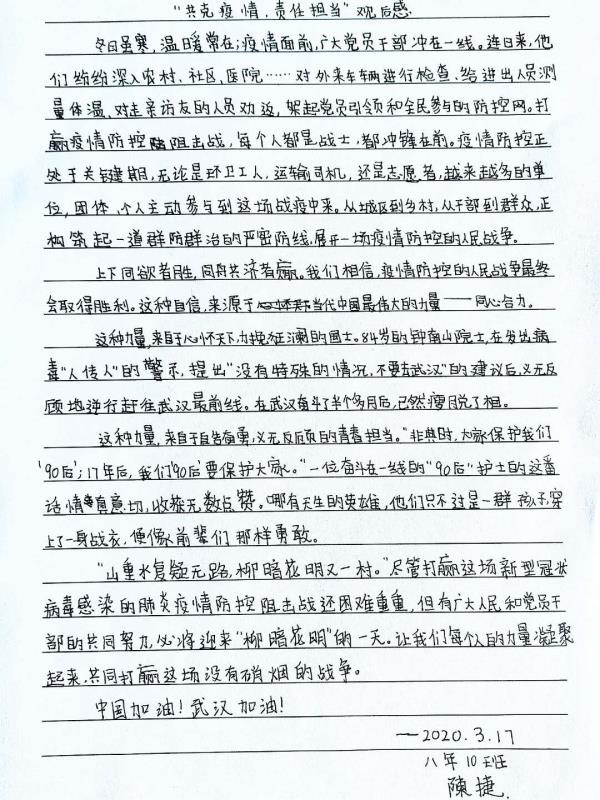 “共克疫情,责任担当”观后感
冬日虽寒,温暖常在;疫情面前,广大党员干部冲在一线。连日来,他
们纷纷深入农村、社区、医院……对外来车辆进行检查、给进出人员测
量体温、对走亲访友的人员劝返,架起党员引领和全民参与的防控网。打
赢疫情防控阻击战,每个人都是战士,都冲锋在前。疫情防控正
处于关键期,无论是环卫工人,运输司机,还是志愿者,越来越多的单
位,团体、个人主动参与到这场战疫中来。从城区到乡村,从干部到群众,正
构筑起一道群防群治的严密防线,展开一场疫情防控的人民战争。
上下同欲者胜,同舟共济者赢。我们相信,疫情防控的人民战争最终
会取得胜利。这种自信,来源于当代中国最伟大的力量——同心合力。
这种力量,来自于心怀天下、力挽狂澜的国士。84岁的钟南山院士,在发出病
毒“人传人”的警示,提出“没有特殊的情况,不要去武汉”的建议后,义无反
顾地逆行赶往武汉最前线。在武汉奋斗了半个多月后,已然瘦脱了相。
这种力量,来自于自告奋勇、义无反顾的青春担当。“非典时,大家保护我们
‘90后’;17年后,我们‘90后’要保护大家。”一位奋斗在一线的“90后”护士的这番
话情真意切,收获无数点赞。哪有天生的英雄,他们只不过是一群孩子,穿
上了一身战衣,便像前辈们那样勇敢。
“山重水复疑无路,柳暗花明又一村。”尽管打赢这场新型冠状
病毒感染的肺炎疫情防控阻击战还困难重重,但有广大人民和党员干
部的共同努力,必将迎来“柳暗花明”的一天。让我们每个人的力量凝聚
起来,共同打赢这场没有硝烟的战争。
中国加油!武汉加油!
——2020.3.17
八年10班
陳捷.